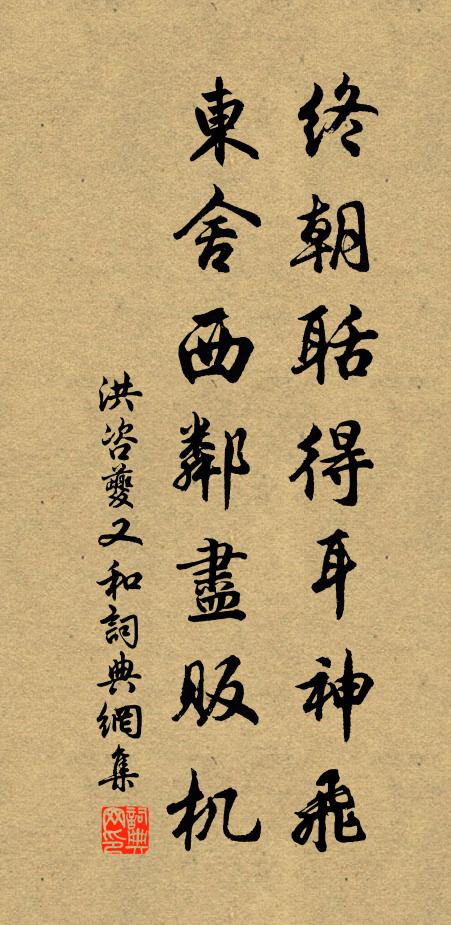 終朝聒得耳神飛
東舍西鄰盡販机
洪咨夔又和詞典網集
詞典網印